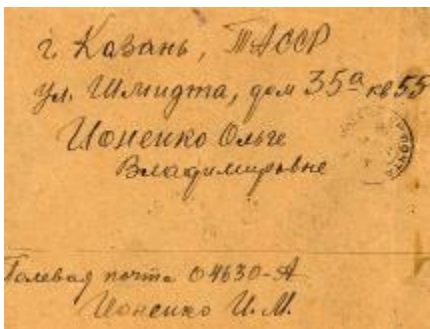 г. Казань, ТАССР
ул. Шмидта, дом 35а кв 55
Ионенко Ольге
Владимировне
Полевая почта 04630-А
Ионенко И.М.